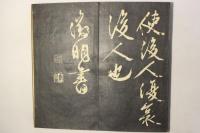 使後人復哀
後人也
徵明書